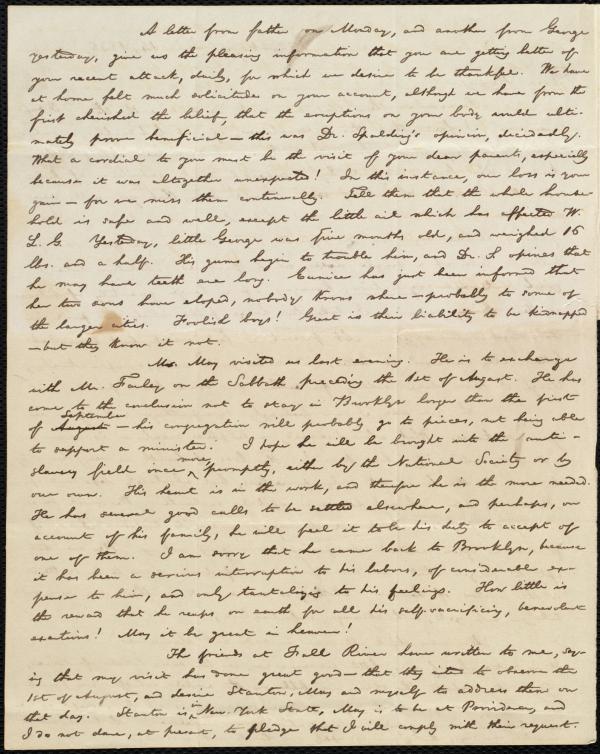 A letter from father on Monday, and another from George
yesterday, give us the pleasing information that you are getting better of
your recent attack, daily, for which we desire to be thankful. We have
at home felt much solicitude on your account, although we have from the
first cherished the belief, that the eruptions on your body would ulti-
mately prove beneficial — this was Dr. Spalding's opinion, decidedly.
What a cordial to you must be the visit of your dear parents, especially
because it was altogether unexpected! In this instance, our loss is your
gain — for we miss them continually. Tell them that the whole house-
hold is safe and well, except the little ail which has affected W.
L. G. Yesterday, little George was five months old, and weighed 16
lbs. and a half. His gums begin to trouble him, and Dr. S. opines that
he may have teeth ere long. Eunice has just been informed that
her two sons have eloped, nobody knows where — probably to some of
the larger cities. Foolish boys! Great is their liability to be kidnapped
— but they know it not.
Mr. May visited us last evening. He is to exchange
with Mr. Farley on the Sabbath preceding the 1st of August. He has
come to the conclusion not to stay in Brooklyn longer than the first
of August September — his congregation will probably go to pieces, not being able
to support a minister. I hope he will be brought into the anti-
slavery field once more, promptly, either by the National Society or by
our own. His heart is in the work, and therefore he is the more needed.
He has several good calls to be settled elsewhere, and perhaps, on
account of his family, he will feel it to be his duty to accept of
one of them. I am sorry that he came back to Brooklyn, because
it has been a serious interruption to his labors, of considerable ex-
pense to him, and only tantalizing to his feelings. How little is
the reward that he reaps on earth for all his self-sacrificing, benevolent
exertions! May it be great in heaven!
The friends at Fall River have written to me, say-
ing that my visit has done great good — that they intend to observe the
1st of August, and desire Stanton, May and myself to address them on
that day. Stanton is in New-York State, May is to be at Providence, and
I do not dare, at present, to pledge that I will comply with their request.